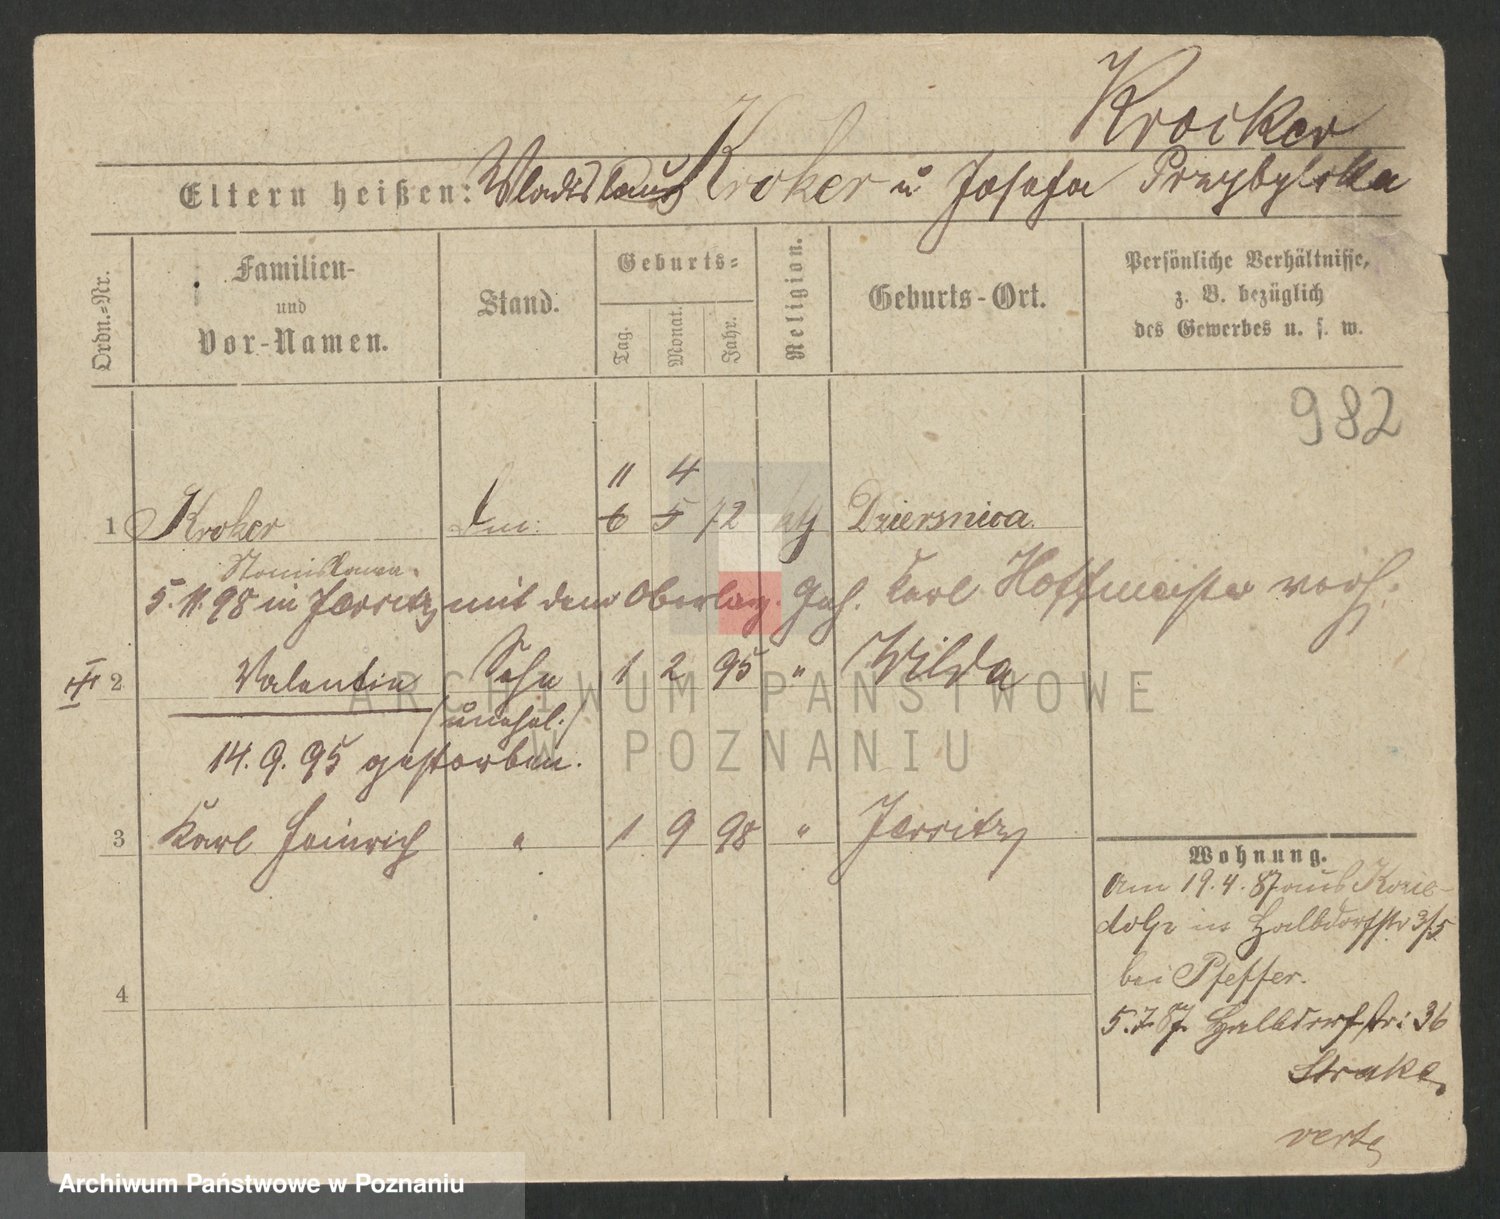 Kroker
Eltern heißen: Wladislaus Kroker u Josefa Przybylska
Ordn.-Nr.
Familien-
und
Vor-Namen.
Stand.
Geburts-
Tag.
Monat.
Jahr.
Religion.
Geburts-Ort.
Persönliche Verhältnisse,
z. B. bezüglich
des Gewerbes u. s. w.
982
11 4
1 Kroker 6 5 72 kth Dziersnica.
Stanislawa
5. 11. 98 in Jersitz mit dem Karl Hoffmeister verh.
2 Valentin Sohn 1 2 95 " Wilda
/unehel./
14. 9. 95 gestorben.
3 Karl Heinrich " 1 9 98 " Jersitz
Wohnung.
Am 19. 4. 87 aus
in Halbdorfstr 3/5
bei Pfeffer.
4
5. 7. 87 Halbdorfstr: 36
Strake
verte
ARCHIWUM PAŃSTWOWE
W POZNANIU
Archiwum Państwowe w Poznaniu